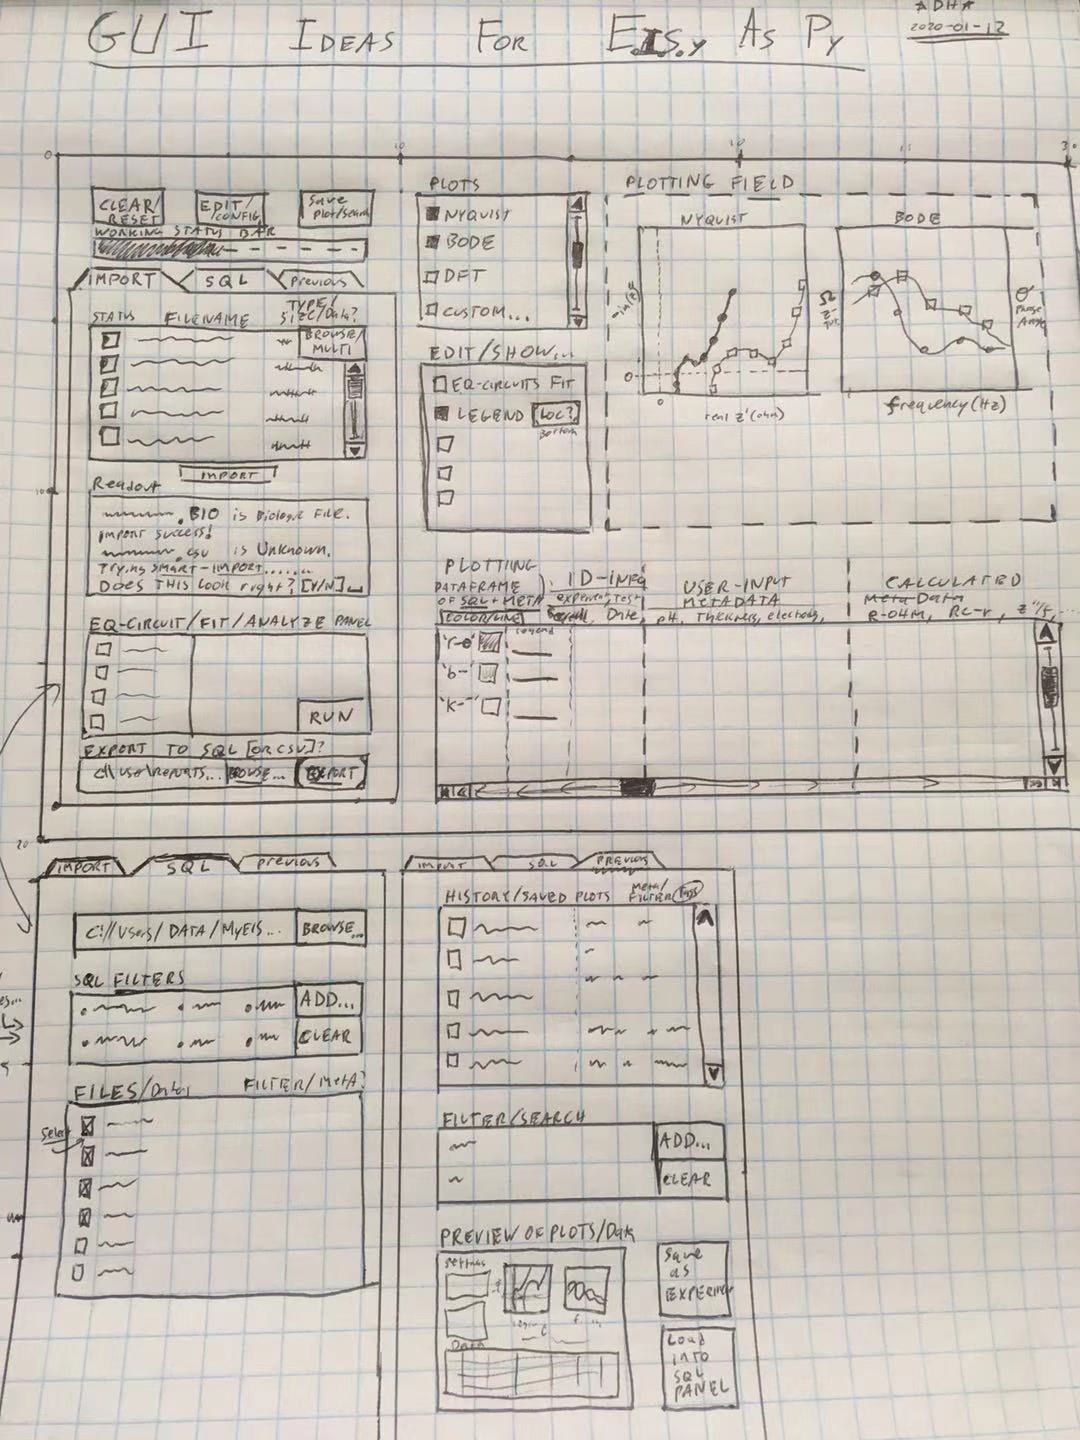 GUI IDEAS FOR E.I.S.y AS PY
ADHA
2020-01-12
0
10
CLEAR/
RESET
EDIT/
CONFIG
Save
plot/search
WORKING STATUS BAR
IMPORT
SQL
Previous
STATUS
FILENAME
TYPE/
SIZE/Data?
BROWSE/
MULTI
IMPORT
Readout
.BIO is Biologic File.
import success!
.csv is Unknown.
Trying SMART-IMPORT......
DOES THIS LOOK right? [Y/N]
EQ-CIRCUIT/FIT/ANALYZE PANEL
RUN
EXPORT TO SQL [OR CSV]?
C:\\USER\REPORTS...
BROWSE...
EXPORT
20
PLOTS
NYQUIST
BODE
DFT
CUSTOM...
EDIT/SHOW...
EQ-CIRCUITS FIT
LEGEND
LOC?
Bottom
PLOTTING FIELD
NYQUIST
0
0
real z'(ohm)
BODE
Phase
Angle
frequency(Hz)
PLOTTING
DATAFRAME
OF SQL+META
ID-INFO
experiment, Test
Date,
USER-INPUT
METADATA
pH, Thickness, electrodes,
CALCULATED
Meta-Data
R-OHM, RC-r, z''/f, ...
COLOR/LINE
legend
'r-o'
'b--'
'k--'
IMPORT
SQL
Previous
C://Users/DATA/MyEIS...
BROWSE...
SQL FILTERS
ADD...
CLEAR
FILES/Data
FILTER/Meta?
Select
IMPORT
SQL
PREVIOUS
HISTORY/SAVED PLOTS
Meta/
FILTER
Tags
FILTER/SEARCH
ADD...
CLEAR
PREVIEW OF PLOTS/Data
Settings
Data
Save
as
EXPERIMENT
Load
into
SQL
PANEL